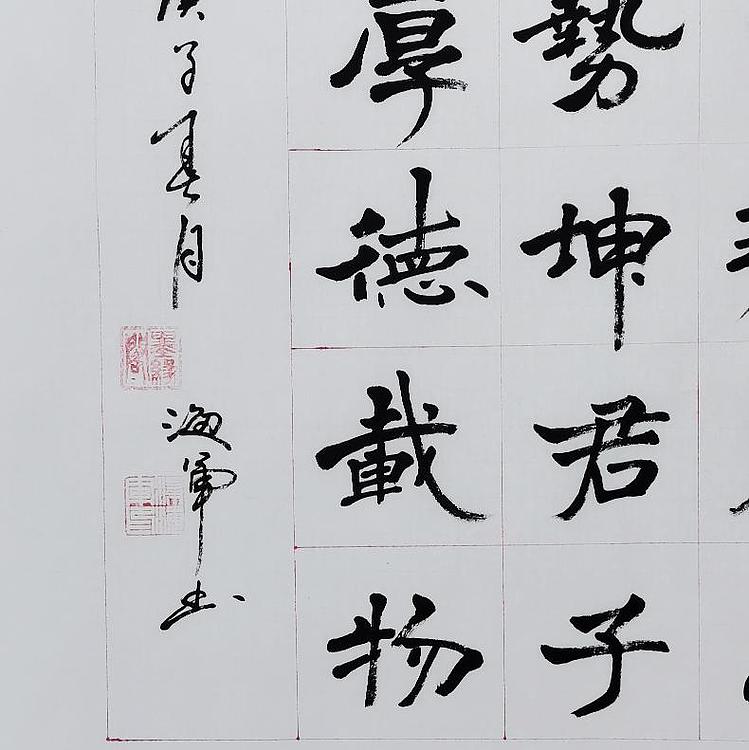 勢坤君子
厚德載物
庚子春月
海軍书